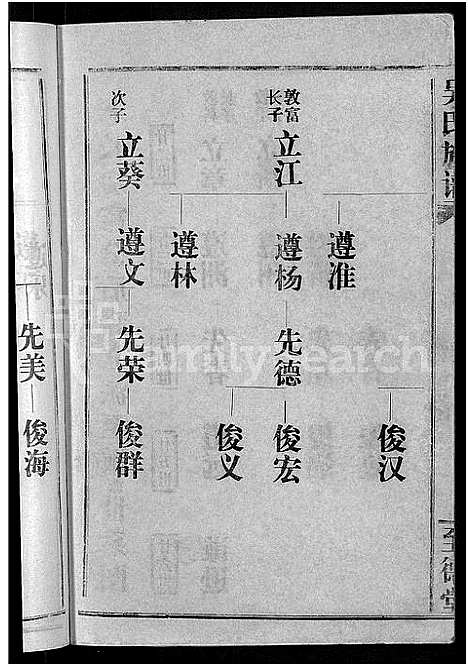 吴氏族谱
至德堂
敦富
长子
立江
遵淮
遵杨
遵林
先德
俊汉
俊宏
俊义
次子
立葵
遵文
先荣
俊群
先美
俊海
FamilySearch